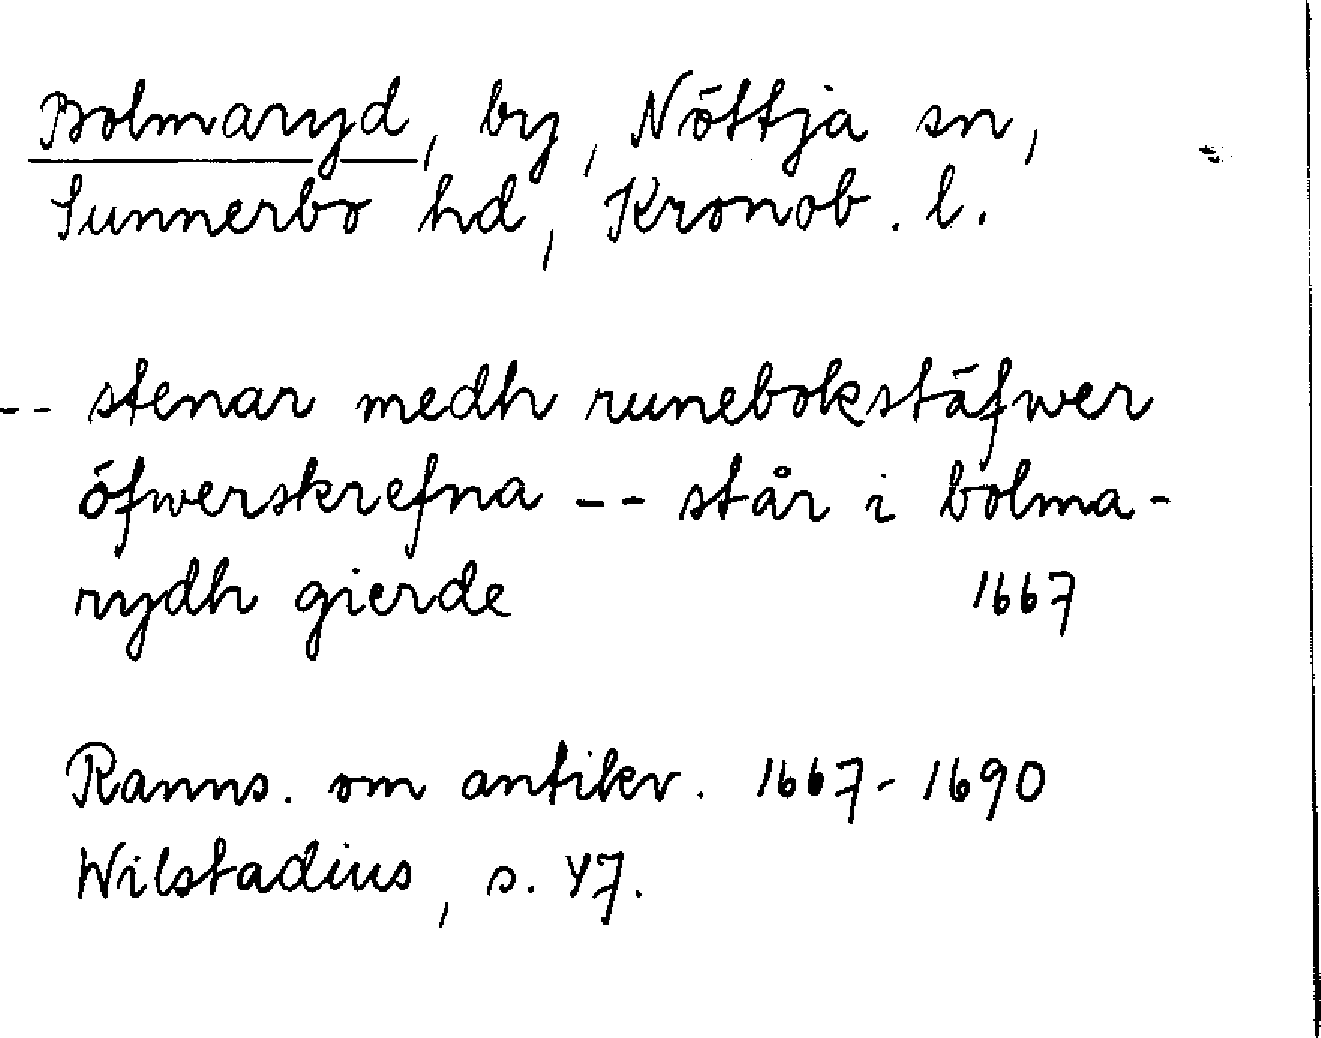 Bolmaryd, by, Nöttja sn,
Sunnerbo hd, Kronob. l.
-- stenar medh runebokstäfwer
öfwerskrefna -- står i bolma-
rydh gierde 1667
Ranns. om antikv. 1667-1690
Wilstadius, s. 47.